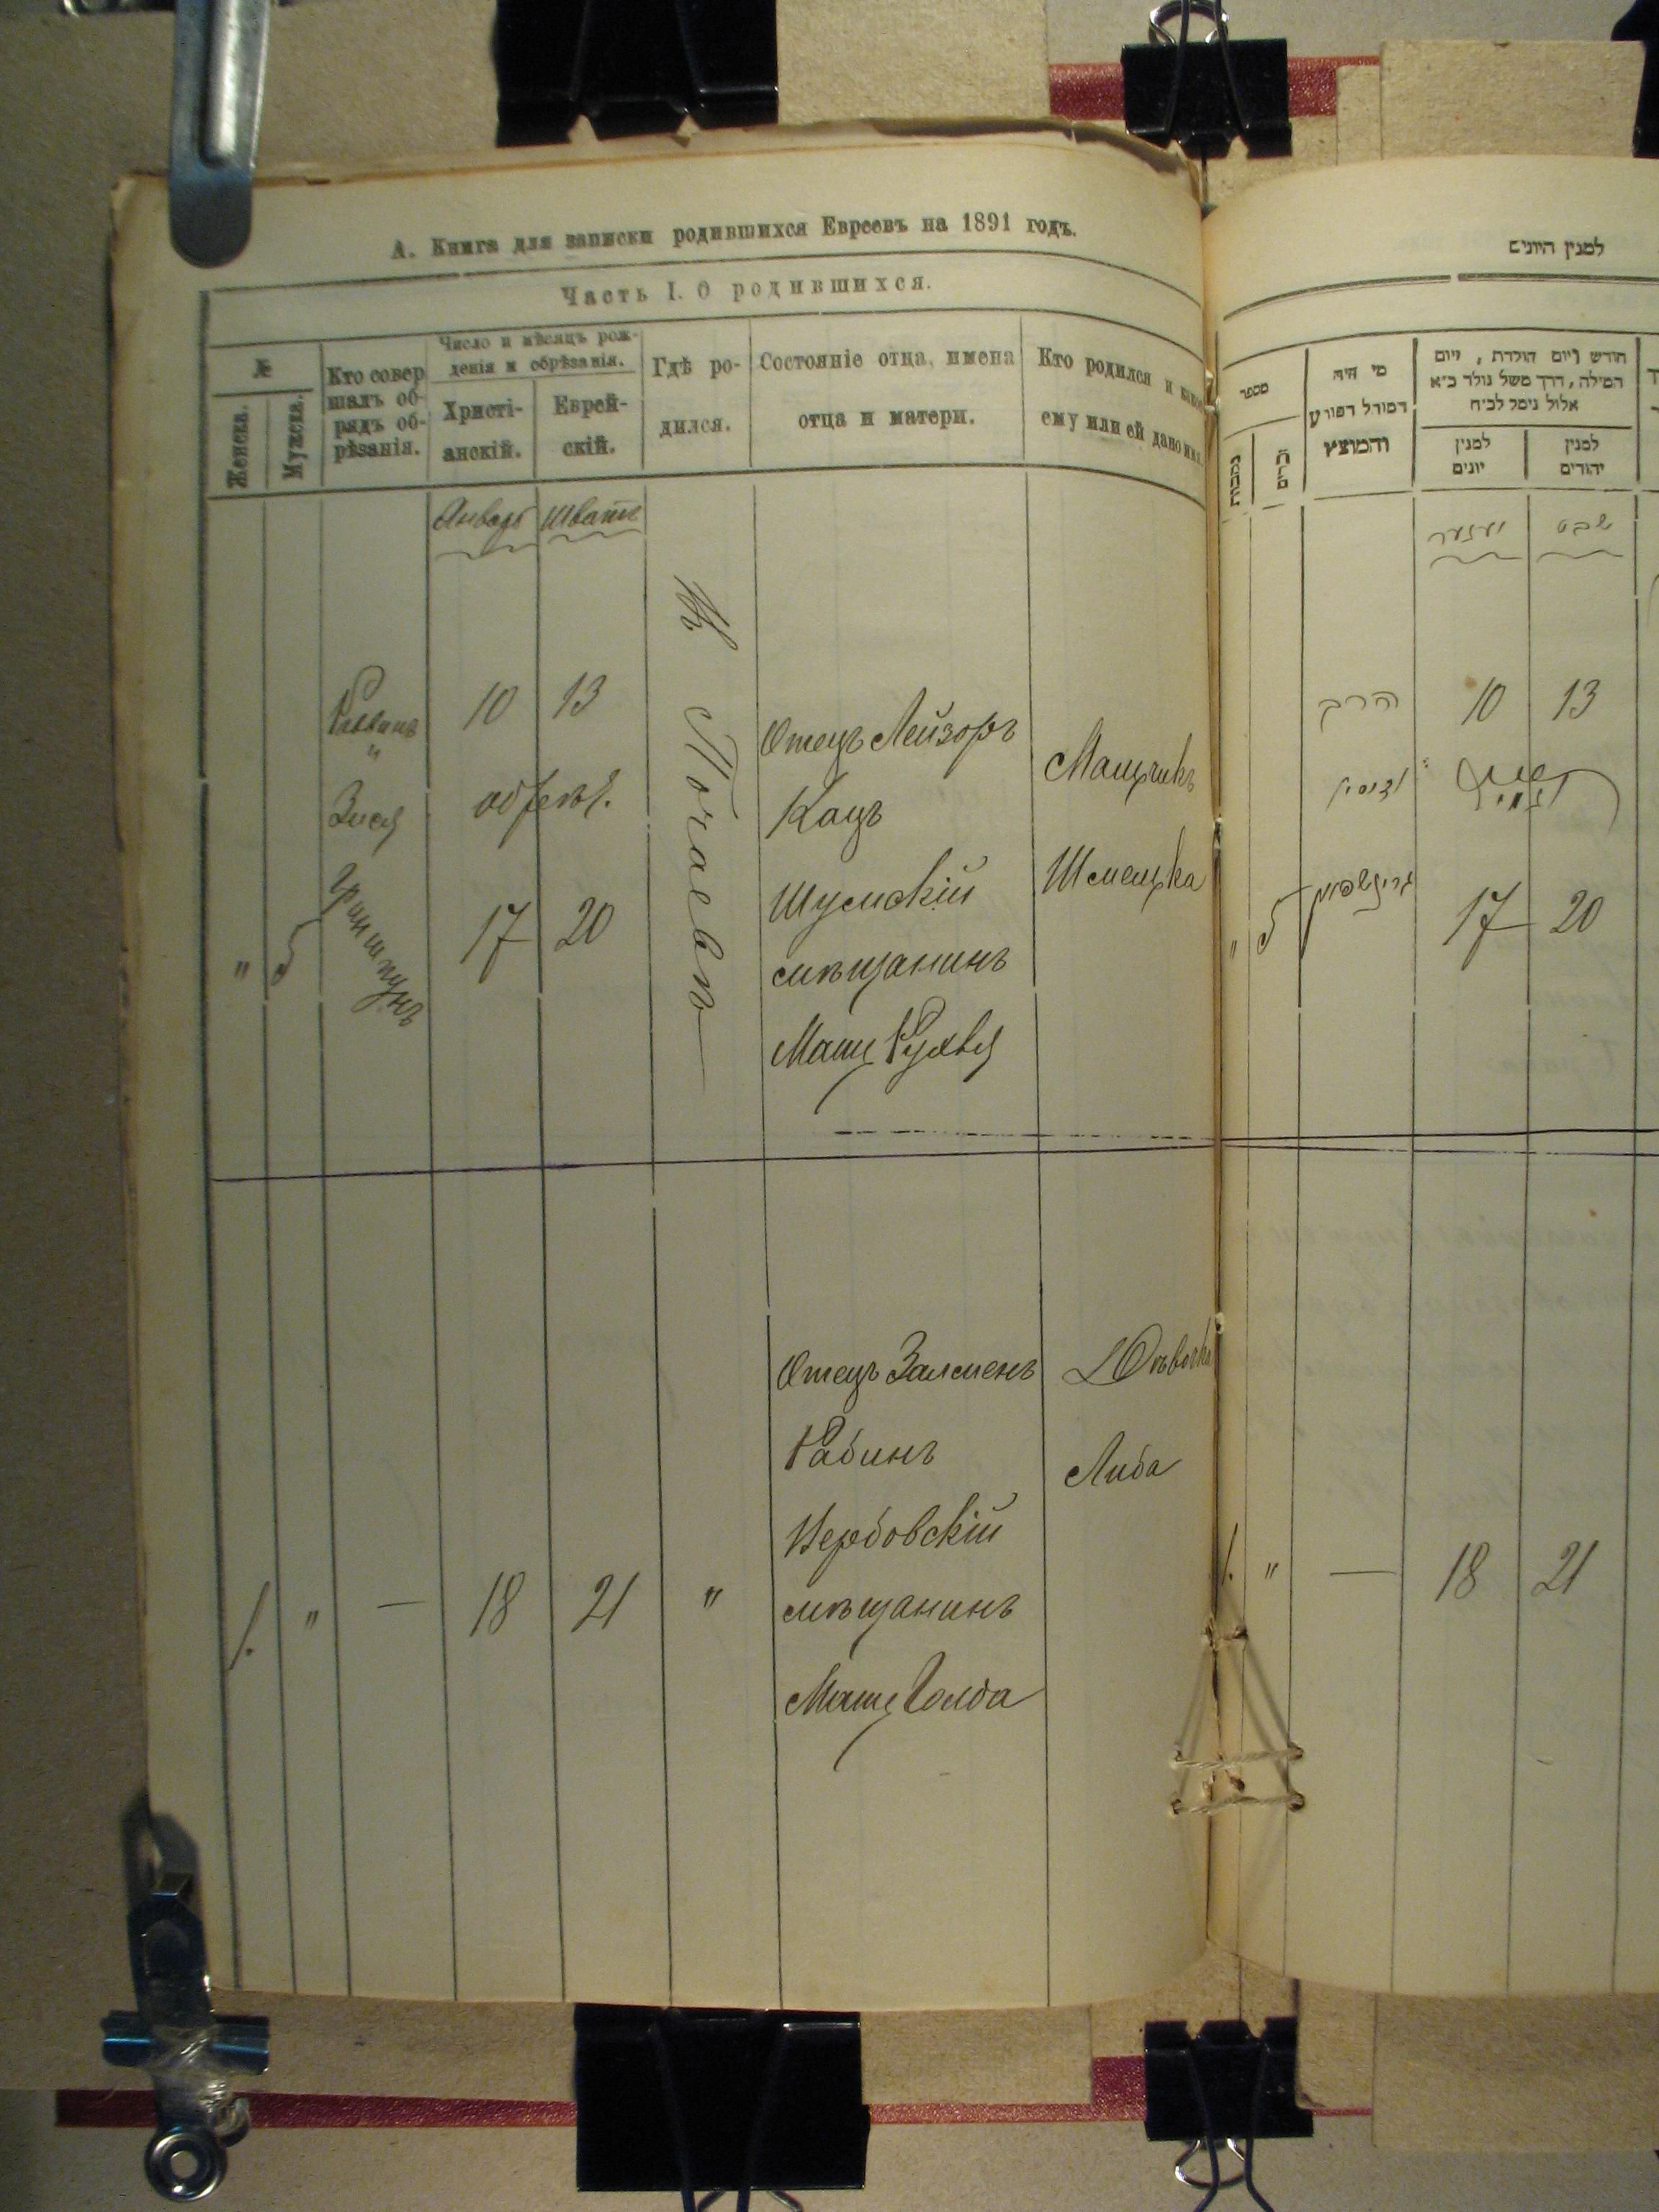 А. Книга для записки родившихся Евреевъ на 1891 годъ.
Часть I. О родившихся.
№
Женска.
Мужска.
Кто совер
шалъ об-
рядъ об-
рѣзанія.
Число и мѣсяцъ рож-
денія и обрѣзанія.
Христі-
анскій.
Еврей-
скій.
Гдѣ ро-
дился.
Состояніе отца, имена
отца и матери.
Кто родился и какое
ему или ей дано имя.
Январь
Шватъ
"
5
Раввинъ
"
Зися
10
13
обрѣз.
17
20
Въ Почаевѣ
Отецъ Лейзоръ
Кацъ
Шумскій
мѣщанинъ
Мать Рухля
Мальчикъ
1.
"
—
18
21
"
Отецъ Залменъ
Рабинъ
Вербовскій
мѣщанинъ
Мать Голда
Дѣвочка
Либа
למנין היונים
מספר
נקבות
זכרים
מי היה
המוהל הפורע
והמוצץ
חודש ויום הולדת, ויום
המילה, דרך משל נולד כ״א
אלול נימל לכ״ח
למנין
יונים
למנין
יהודים
יאנואר
שבט
"
5
הרב
10
13
17
20
1.
"
—
18
21